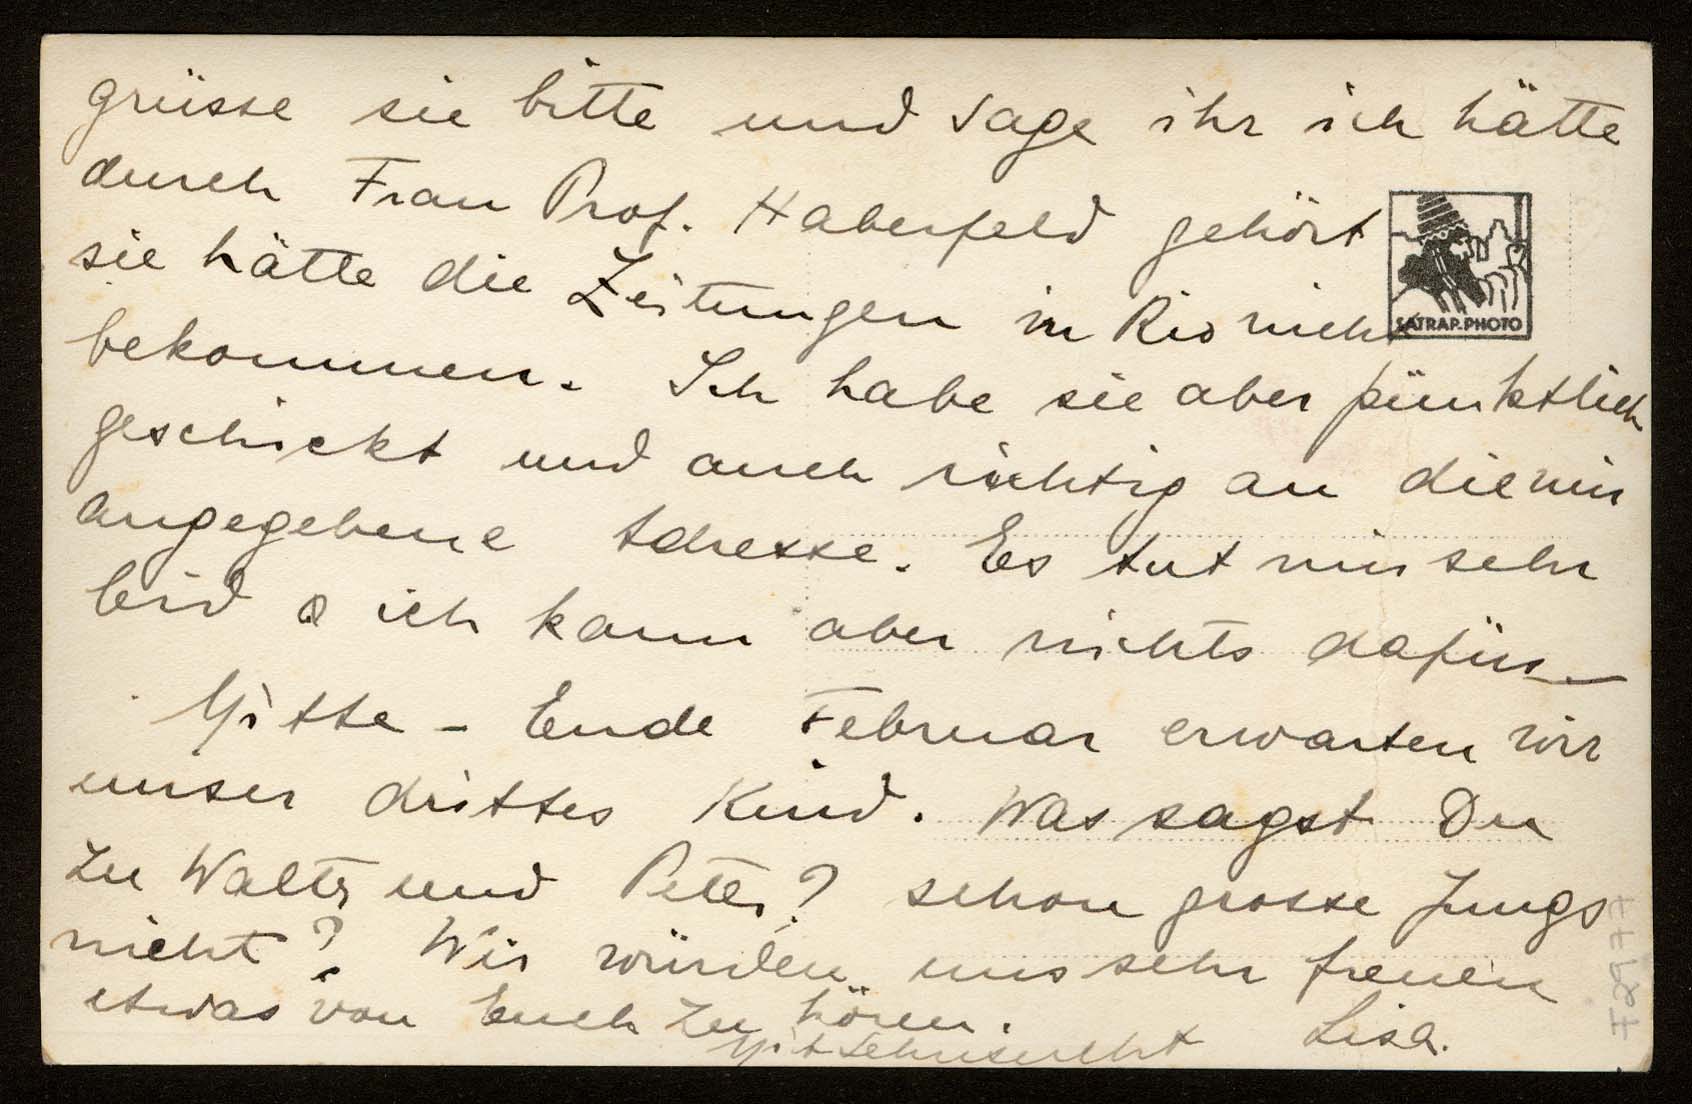 grüsse sie bitte und sage ihr ich hätte
durch Frau Prof. Haberfeld gehört
sie hätte die Zeitungen in Rio nicht
SATRAP-PHOTO
bekommen. Ich habe sie aber pünktlich
geschickt und auch richtig an die mir
angegebene Adresse. Es tut mir sehr
leid & ich kann aber nichts dafür.
Mitte - Ende Februar erwarten wir
unser drittes Kind. Was sagst Du
zu Walter und Peter? schon grosse Jungs
nicht? Wir würden uns sehr freuen
etwas von Euch zu hören.
Mit Sehnsucht Lisa.